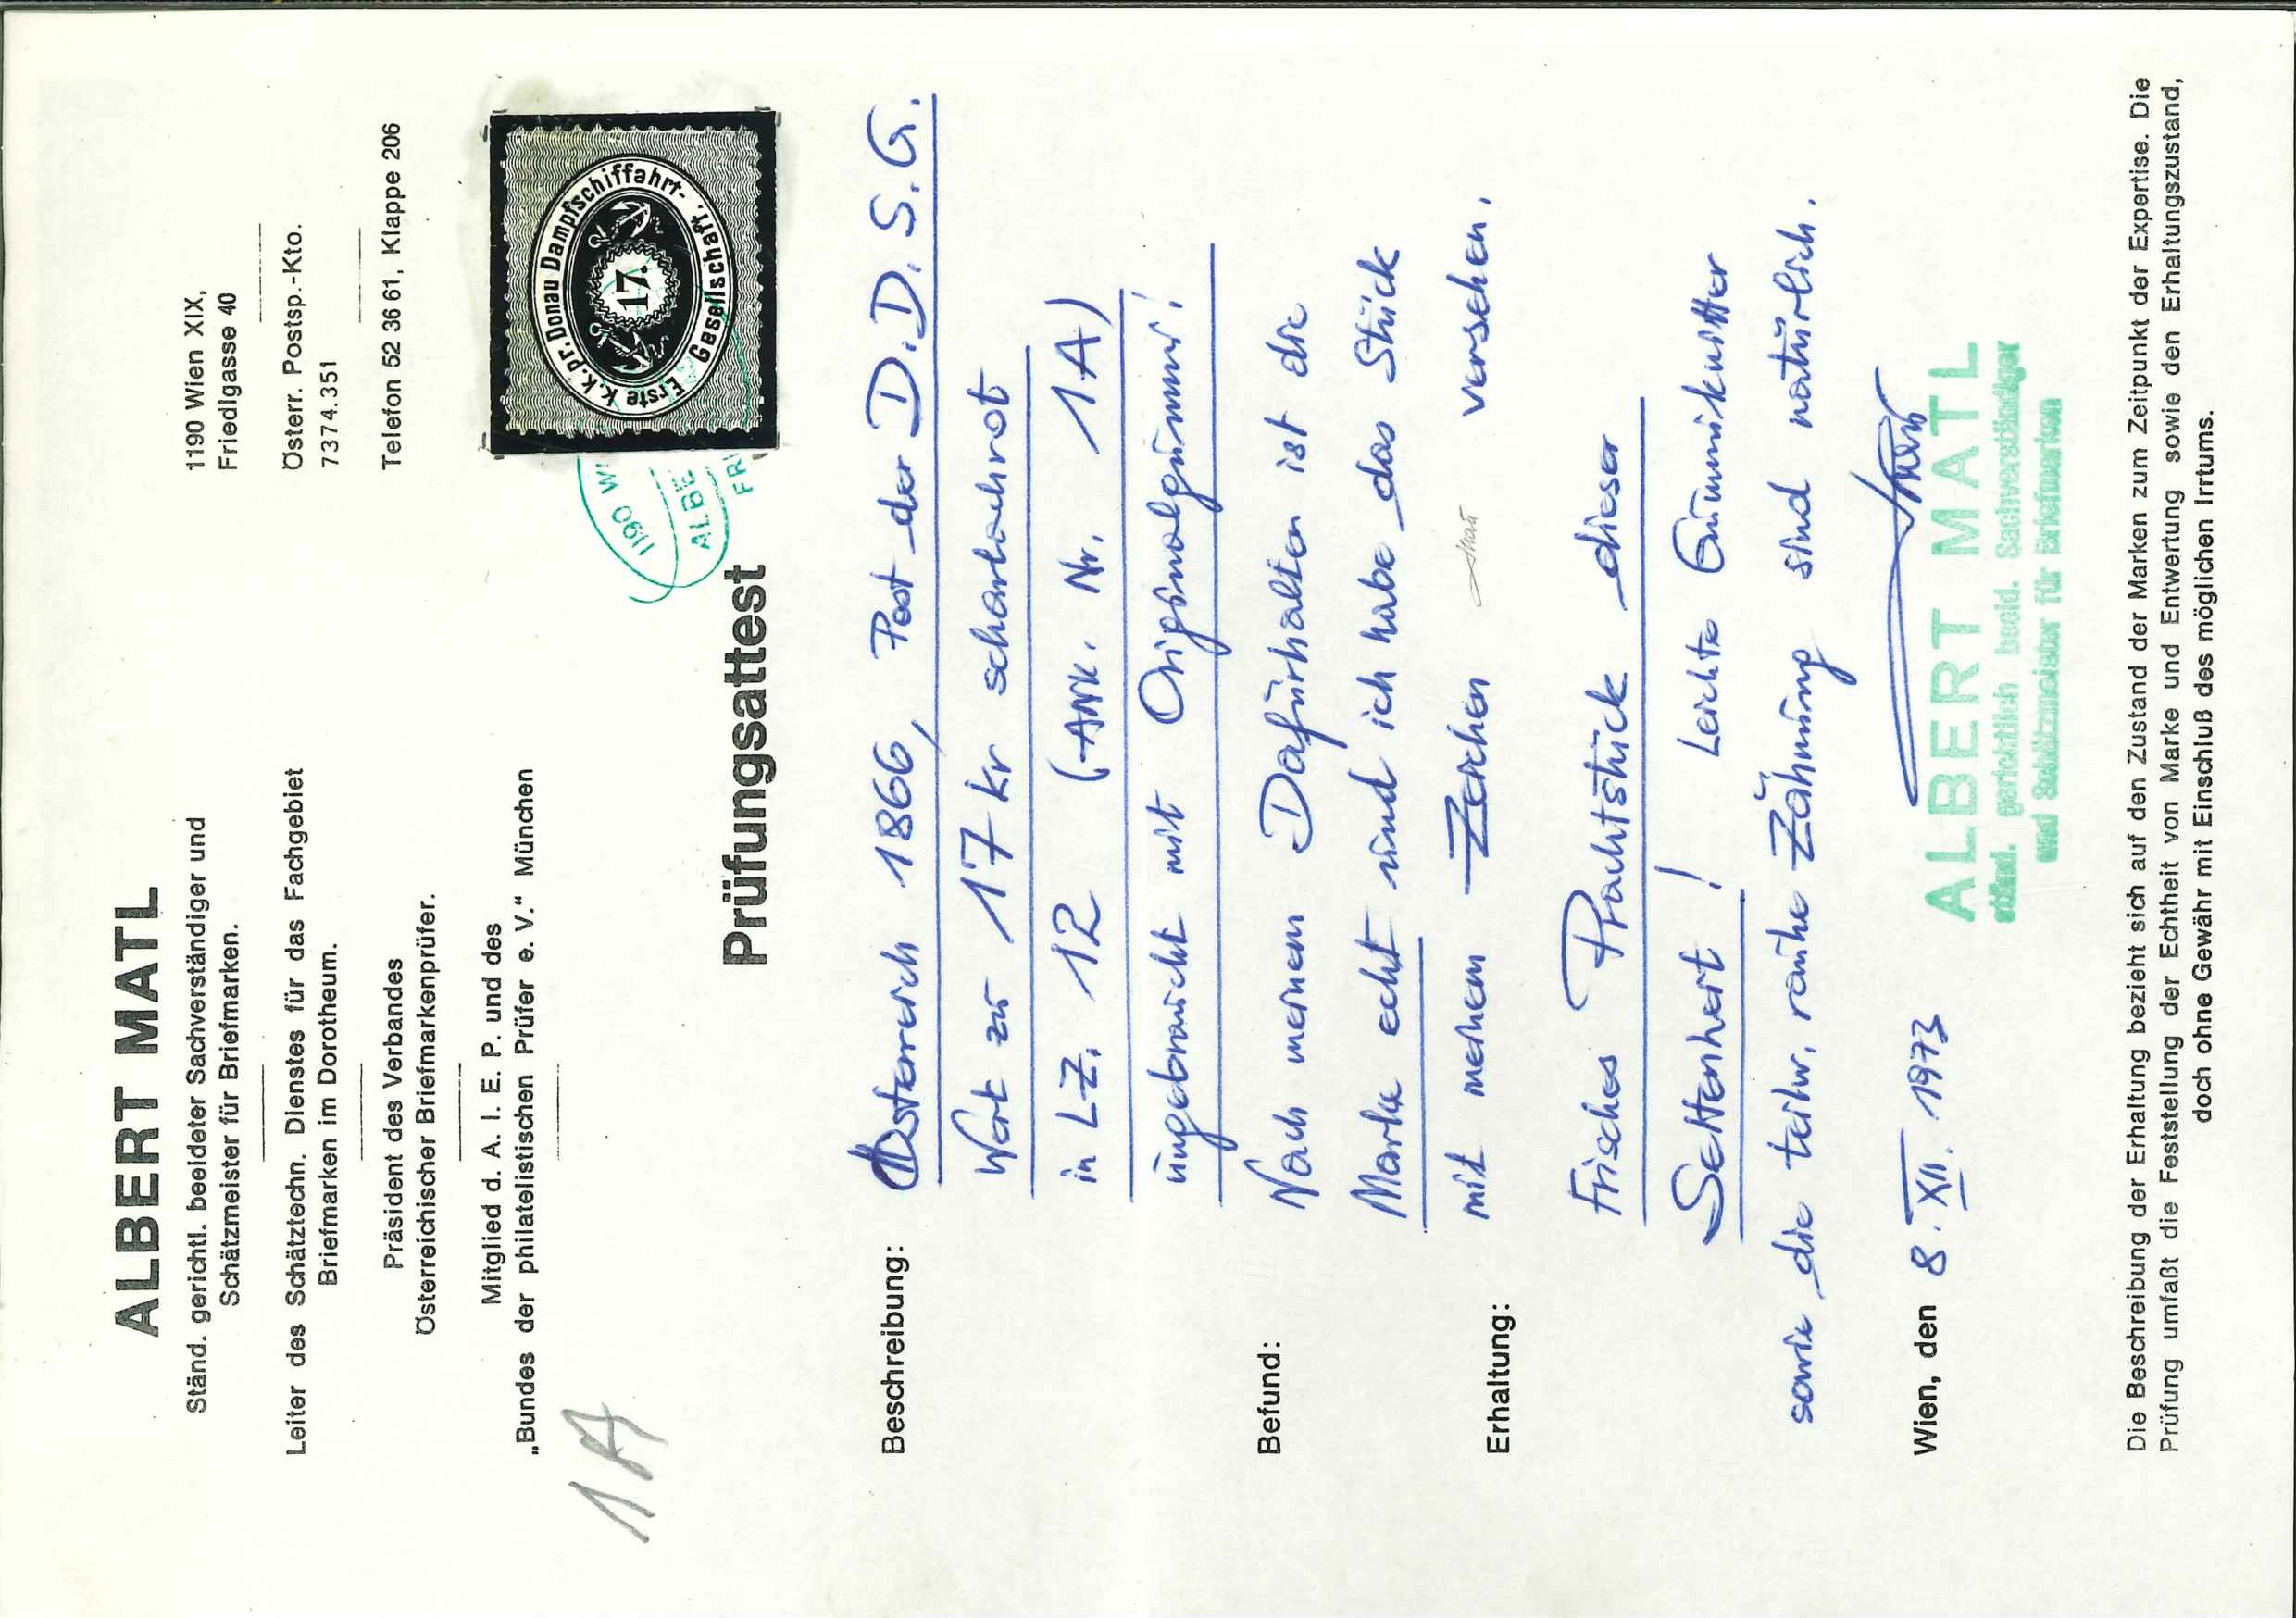 ALBERT MATL
Ständ. gerichtl. beeideter Sachverständiger und
Schätzmeister für Briefmarken.
Leiter des Schätztechn. Dienstes für das Fachgebiet
Briefmarken im Dorotheum.
Präsident des Verbandes
Österreichischer Briefmarkenprüfer.
Mitglied d. A. I. E. P. und des
„Bundes der philatelistischen Prüfer e. V.“ München
1190 Wien XIX,
Friedlgasse 40
Österr. Postsp.-Kto.
7374.351
Telefon 52 36 61, Klappe 206
Erste k.k.pr. Donau Dampfschiffahrt-
Gesellschaft.
17.
1190 W
ALBE
FRI
1A
Prüfungsattest
Beschreibung: Österreich 1866, Post der D.D.S.G.
Wert zu 17 kr scharlachrot
in LZ. 12 (ANK. Nr. 1A)
ungebraucht mit Originalgummi!
Befund: Nach meinem Dafürhalten ist die
Marke echt und ich habe das Stück
mit meinem Zeichen versehen.
Erhaltung: Frisches Prachtstück dieser
Seltenheit! Leichte Gummiknitter
sowie die teilw. rauhe Zähnung sind natürlich.
Wien, den 8. XII. 1973
ALBERT MATL
ständ. gerichtlich beeid. Sachverständiger
und Schätzmeister für Briefmarken
Die Beschreibung der Erhaltung bezieht sich auf den Zustand der Marken zum Zeitpunkt der Expertise. Die
Prüfung umfaßt die Feststellung der Echtheit von Marke und Entwertung sowie den Erhaltungszustand,
doch ohne Gewähr mit Einschluß des möglichen Irrtums.